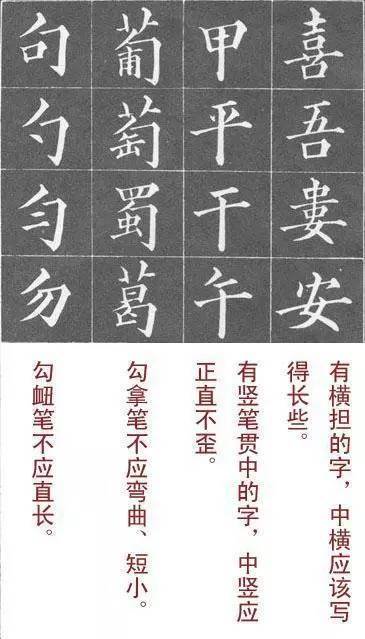 喜吾婁安
甲平干午
葡萄蜀葛
句勺匀勿
有横担的字，中横应该写
得长些。
有竖笔贯中的字，中竖应
正直不歪。
勾拿笔不应弯曲、短小。
勾衄笔不应直长。